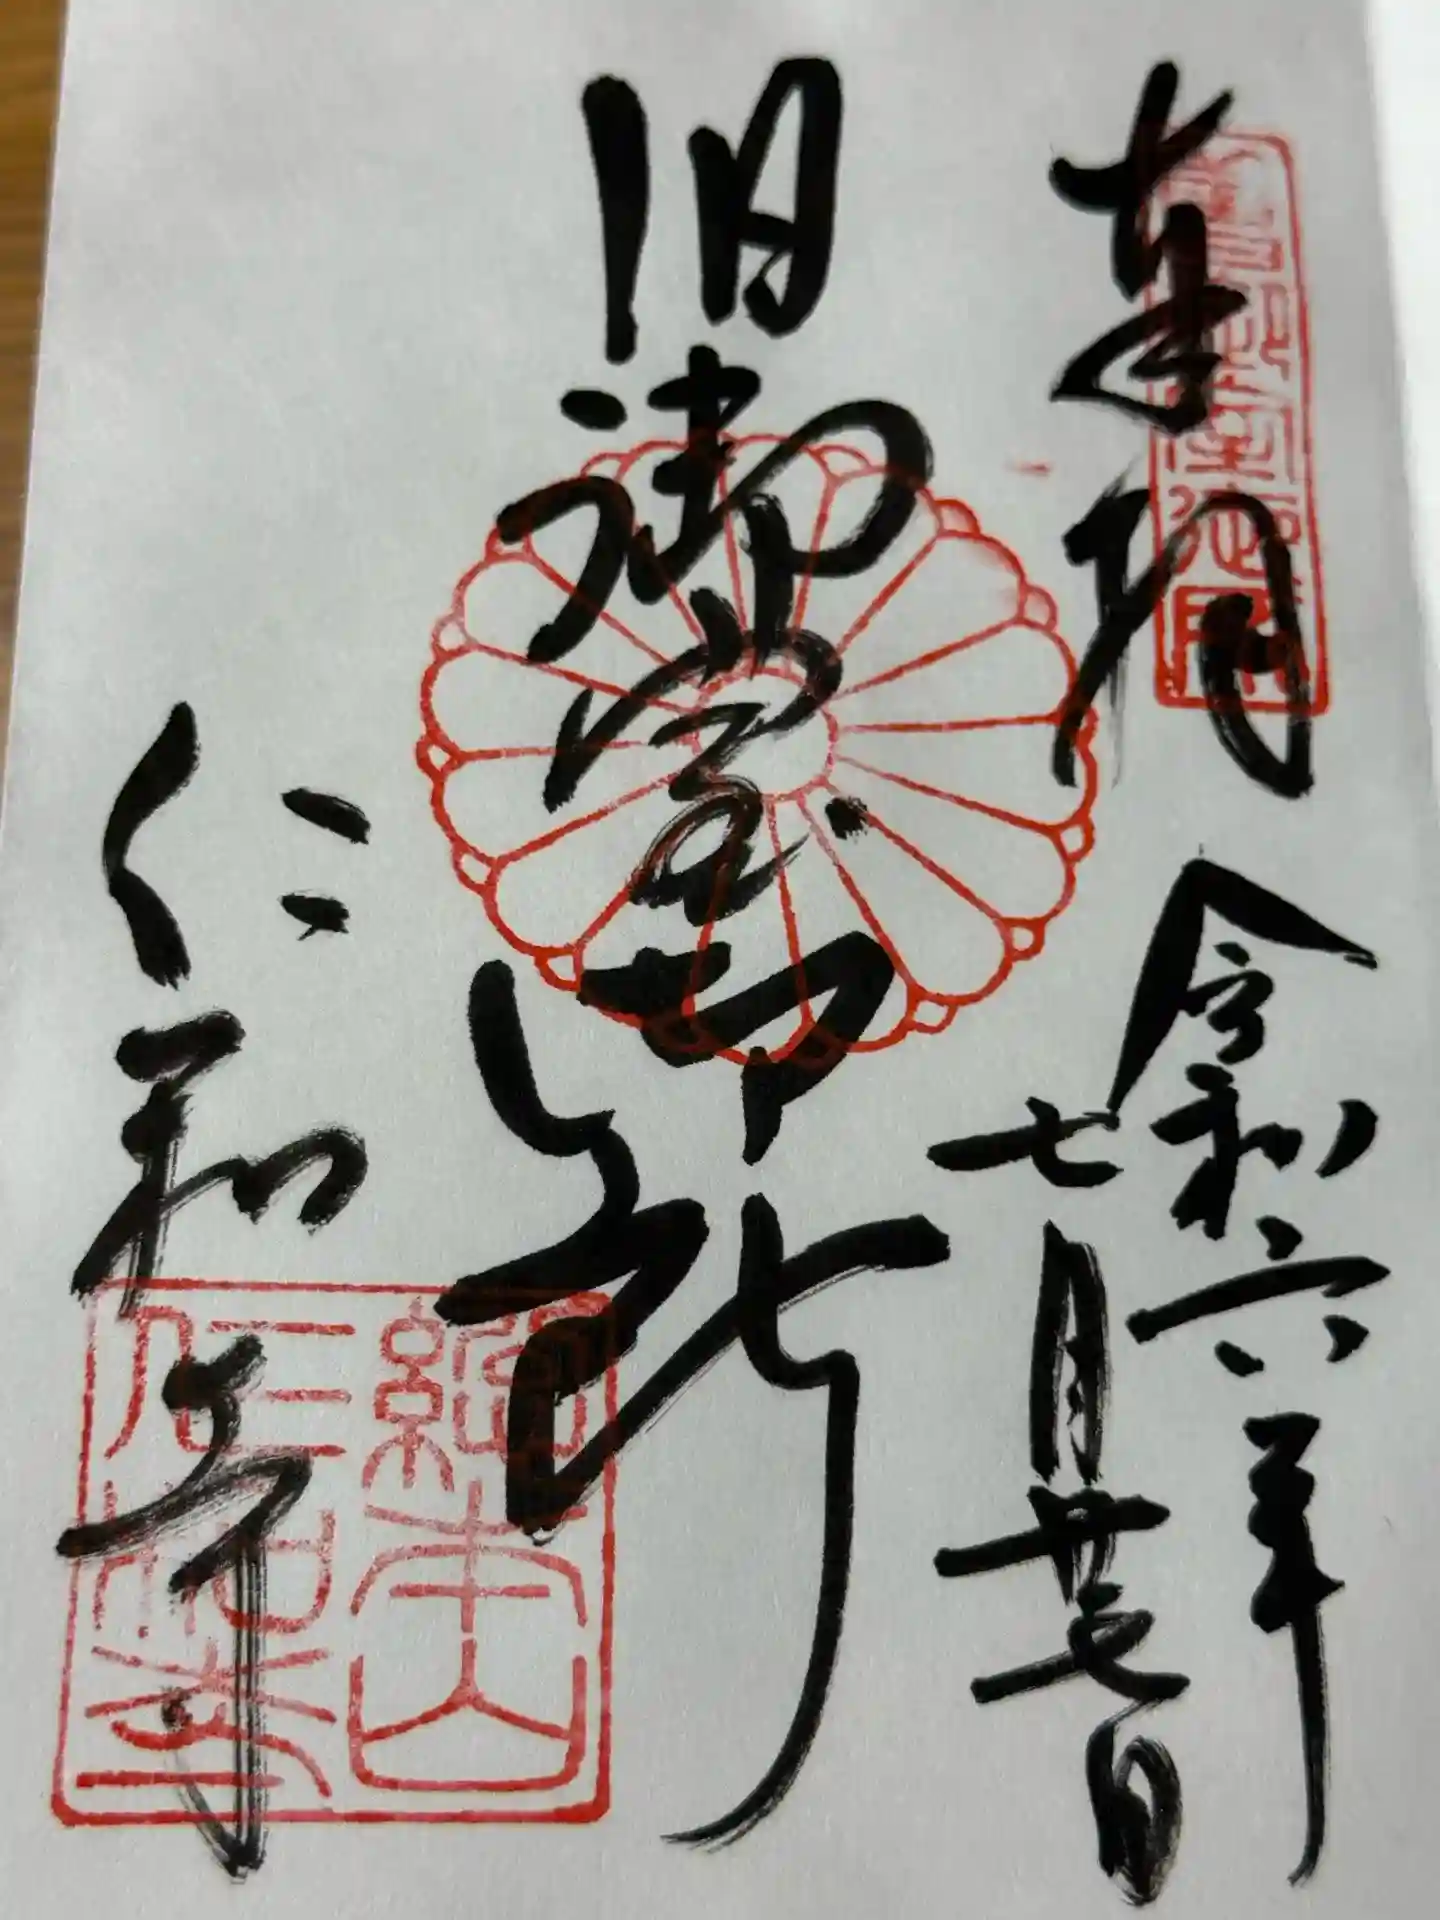 奉拝
令和六年
七月廿七日
旧御室御所
仁和寺
總本山
仁和寺